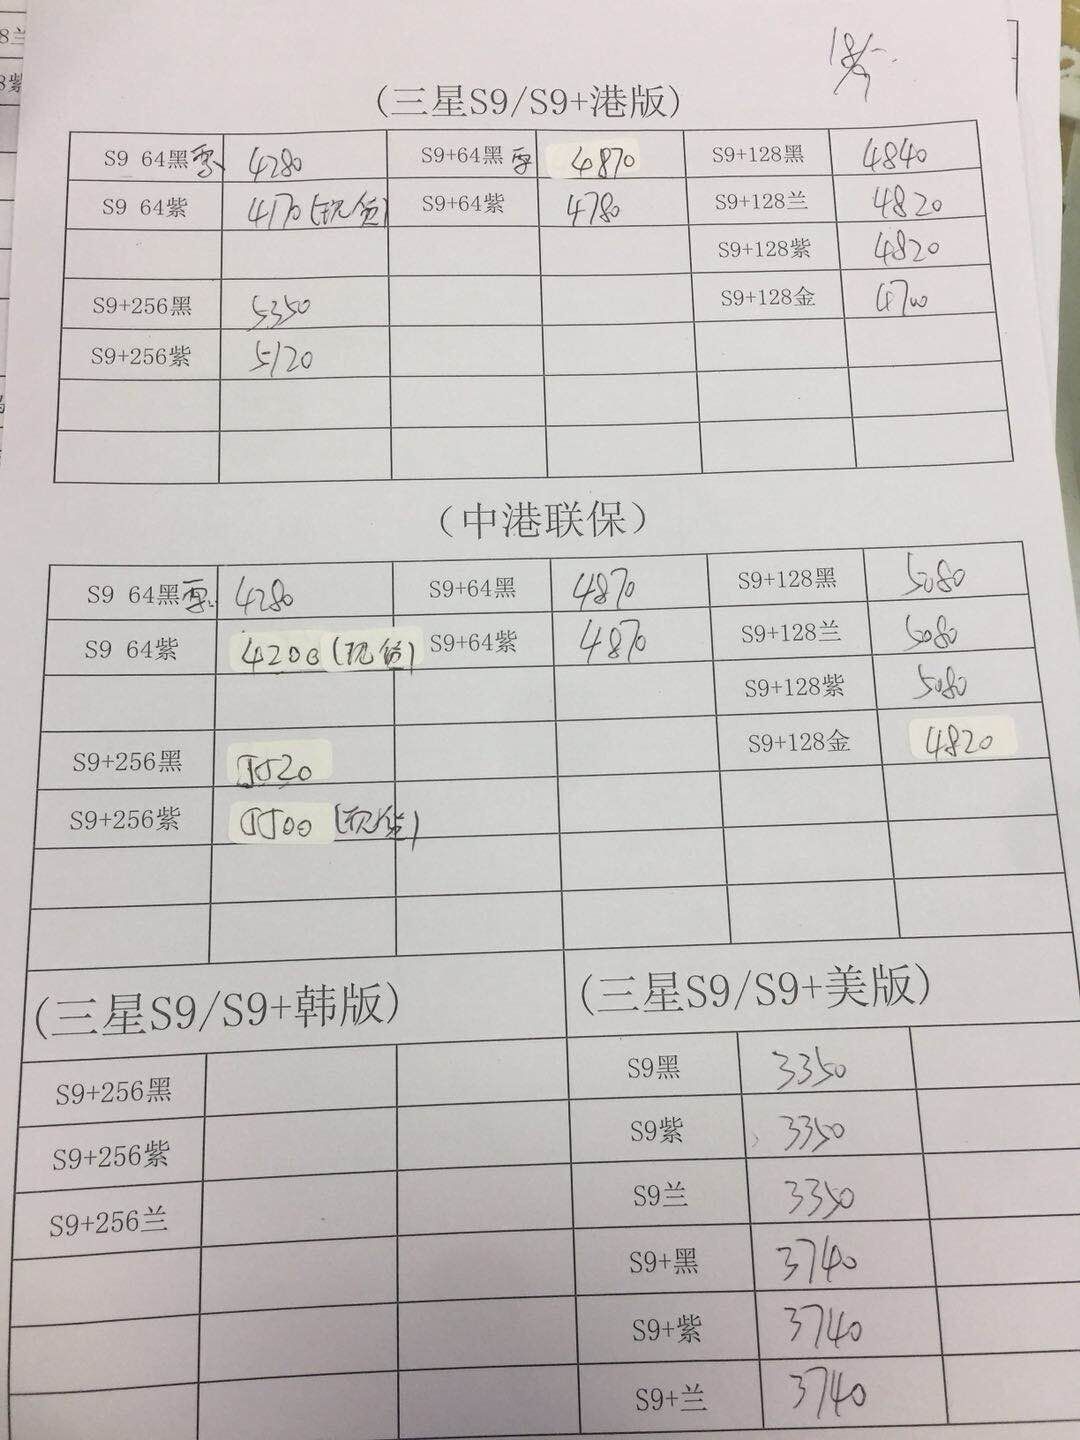 8兰
8紫
(三星S9/S9+港版)
S9 64黑 4280 S9+64黑 4870 S9+128黑 4840
S9 64紫 4170(现货) S9+64紫 4780 S9+128兰 4820
S9+128紫 4820
S9+256黑 5350 S9+128金 4700
S9+256紫 5120
(中港联保)
S9 64黑 4280 S9+64黑 4870 S9+128黑 5080
S9 64紫 4200(现货) S9+64紫 4870 S9+128兰 5080
S9+128紫 5080
S9+256黑 5520 S9+128金 4820
S9+256紫 5500(现货)
(三星S9/S9+韩版) (三星S9/S9+美版)
S9+256黑 S9黑 3350
S9+256紫 S9紫 3350
S9+256兰 S9兰 3350
S9+黑 3740
S9+紫 3740
S9+兰 3740